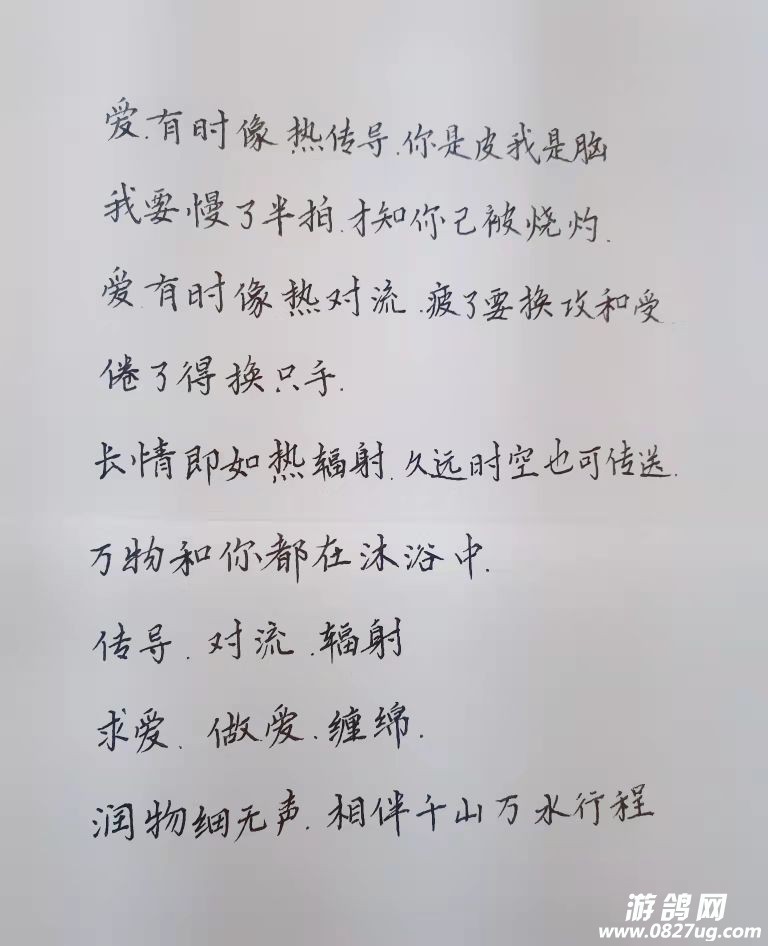 爱.有时像热传导.你是皮我是脑
我要慢了半拍.才知你已被烧灼.
爱.有时像热对流.疲了要换攻和受
倦了得换只手.
长情即如热辐射.久远时空也可传送.
万物和你都在沐浴中.
传导.对流.辐射
求爱.做爱.缠绵.
润物细无声.相伴千山万水行程
游鸽网
www.0827ug.com